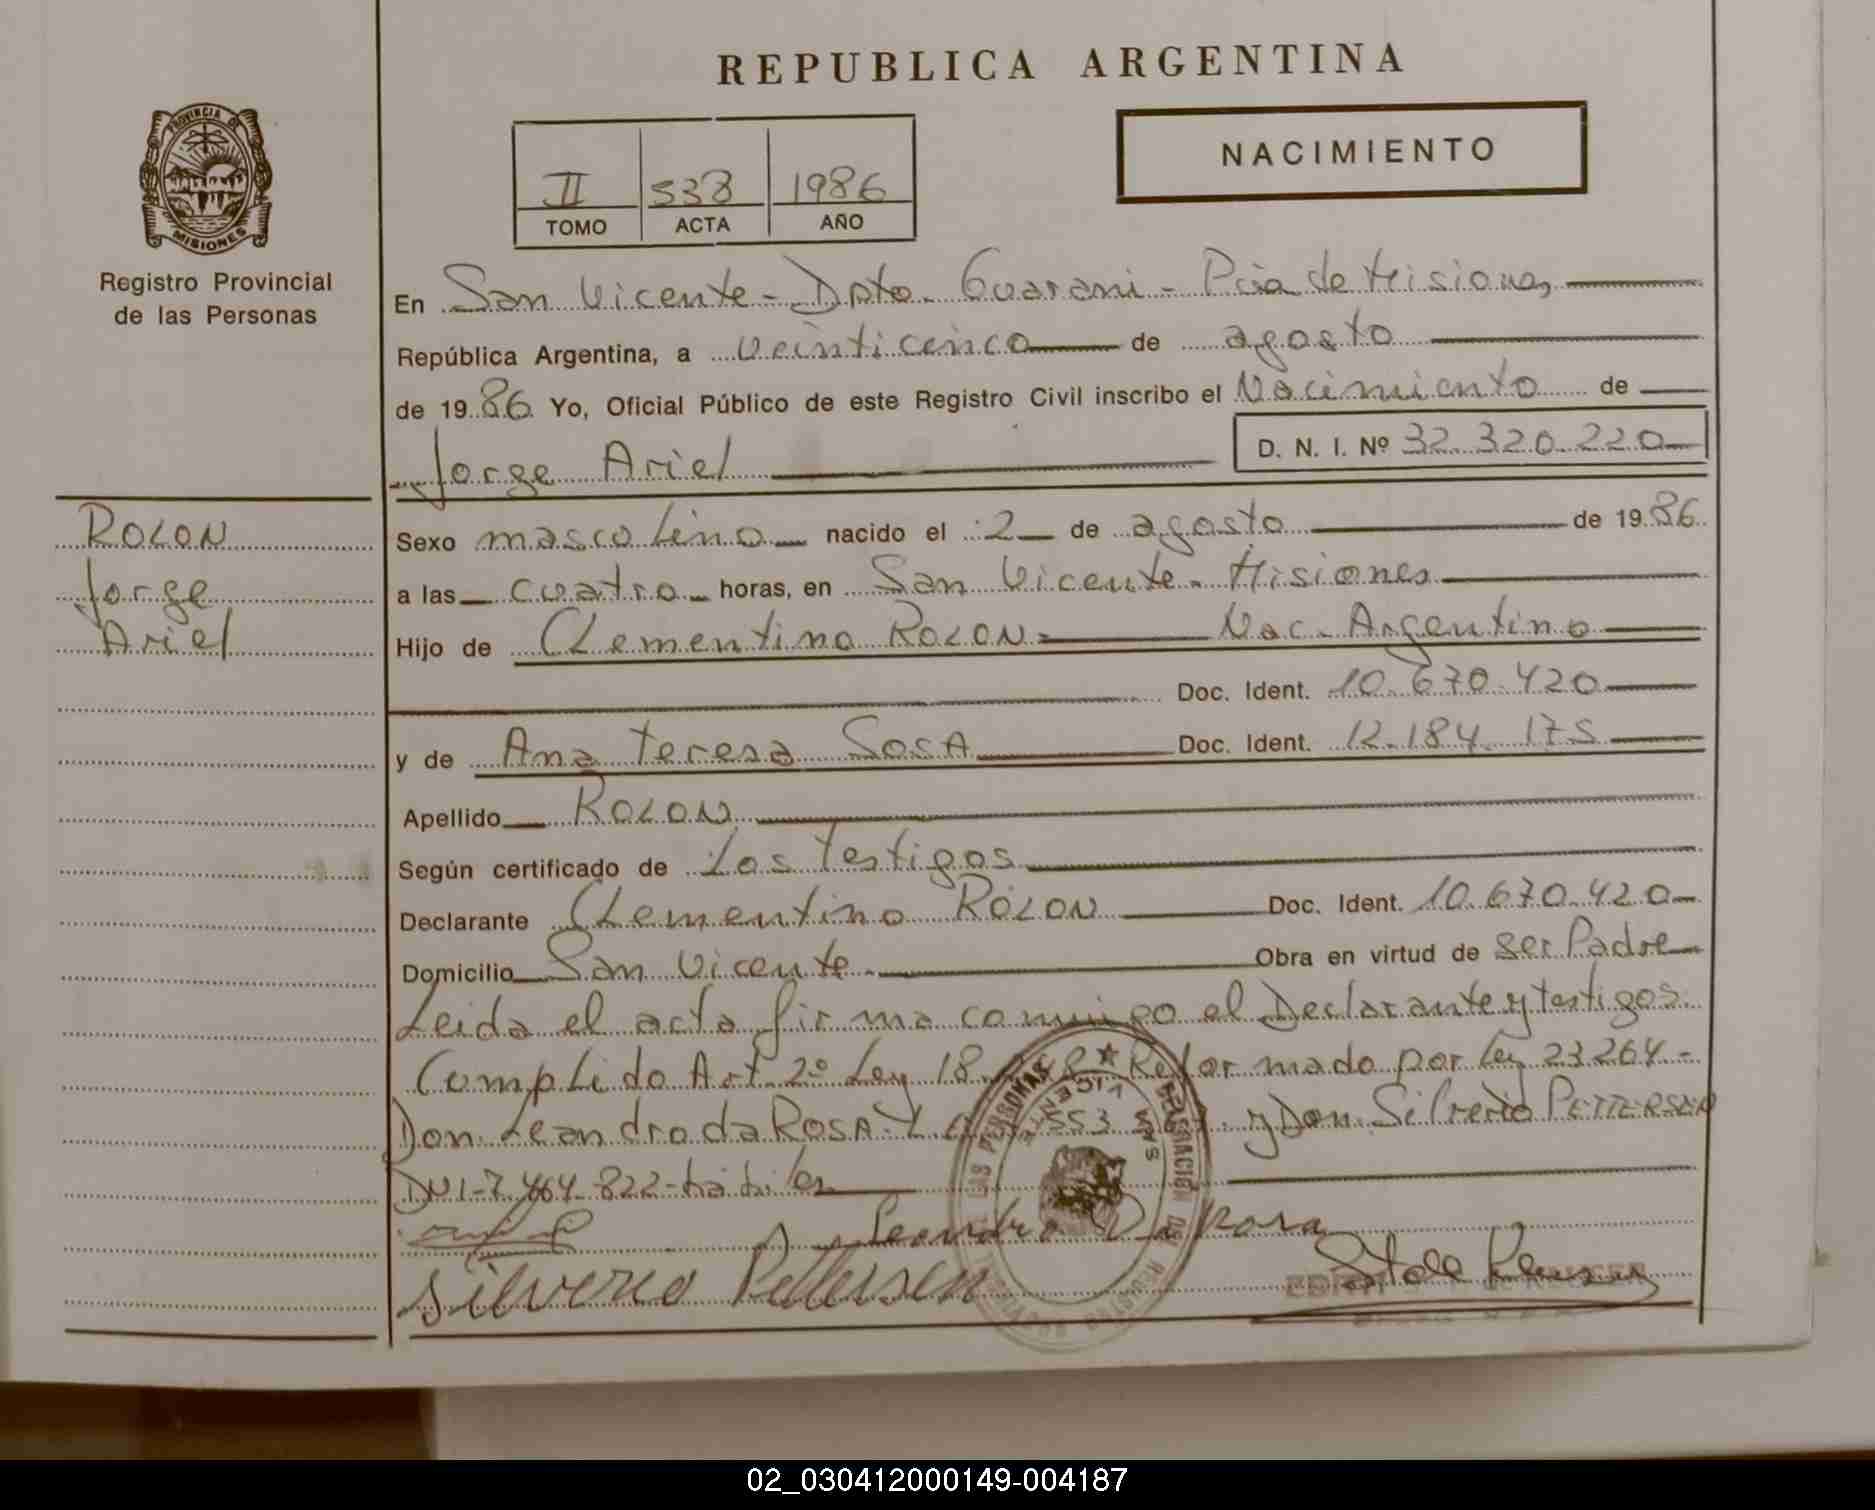 REPUBLICA ARGENTINA
PROVINCIA DE
MISIONES
Registro Provincial
de las Personas
NACIMIENTO
II 538 1986
TOMO ACTA AÑO
En San Vicente - Dpto. Guarani - Pcia de Misiones
República Argentina, a veinticinco de agosto
de 1986 Yo, Oficial Público de este Registro Civil inscribo el Nacimiento de
Jorge Ariel
D. N. I. Nº 32.320.220
ROLON
Jorge
Ariel
Sexo masculino nacido el 2 de agosto de 1986
a las cuatro horas, en San Vicente - Misiones
Hijo de Clementino ROLON - Nac. Argentino
Doc. Ident. 10.670.420
y de Ana Teresa SOSA Doc. Ident. 12.184.175
Apellido ROLON
Según certificado de Los Testigos
Declarante Clementino ROLON Doc. Ident. 10.670.420
Domicilio San Vicente - Obra en virtud de ser Padre
Leida el acta firma conmigo el Declarante y testigos.
Complido Art. 2º Ley 18. Reformado por Ley 23.264 -
Don Leandro da ROSA 553 y Don Silverio PETTERSEN
DNI-7.464.822-
Leandro Da Rosa
Silverio Pettersen
DELEGACIÓN
LAS PERSONAS
SAN VICENTE
02_030412000149-004187